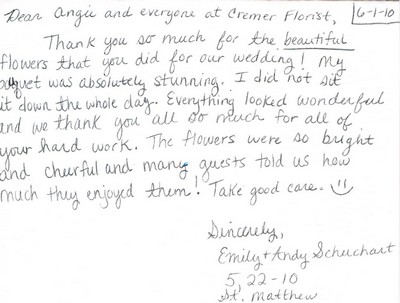 Dear Angie and everyone at Cremer Florist,
6-1-10
Thank you so much for the beautiful
flowers that you did for our wedding! My
bouquet was absolutely stunning. I did not sit
it down the whole day. Everything looked wonderful
and we thank you all so much for all of
your hard work. The flowers were so bright
and cheerful and many guests told us how
much they enjoyed them! Take good care.
Sincerely,
Emily + Andy Scheichart
5, 22-10
St. Matthew